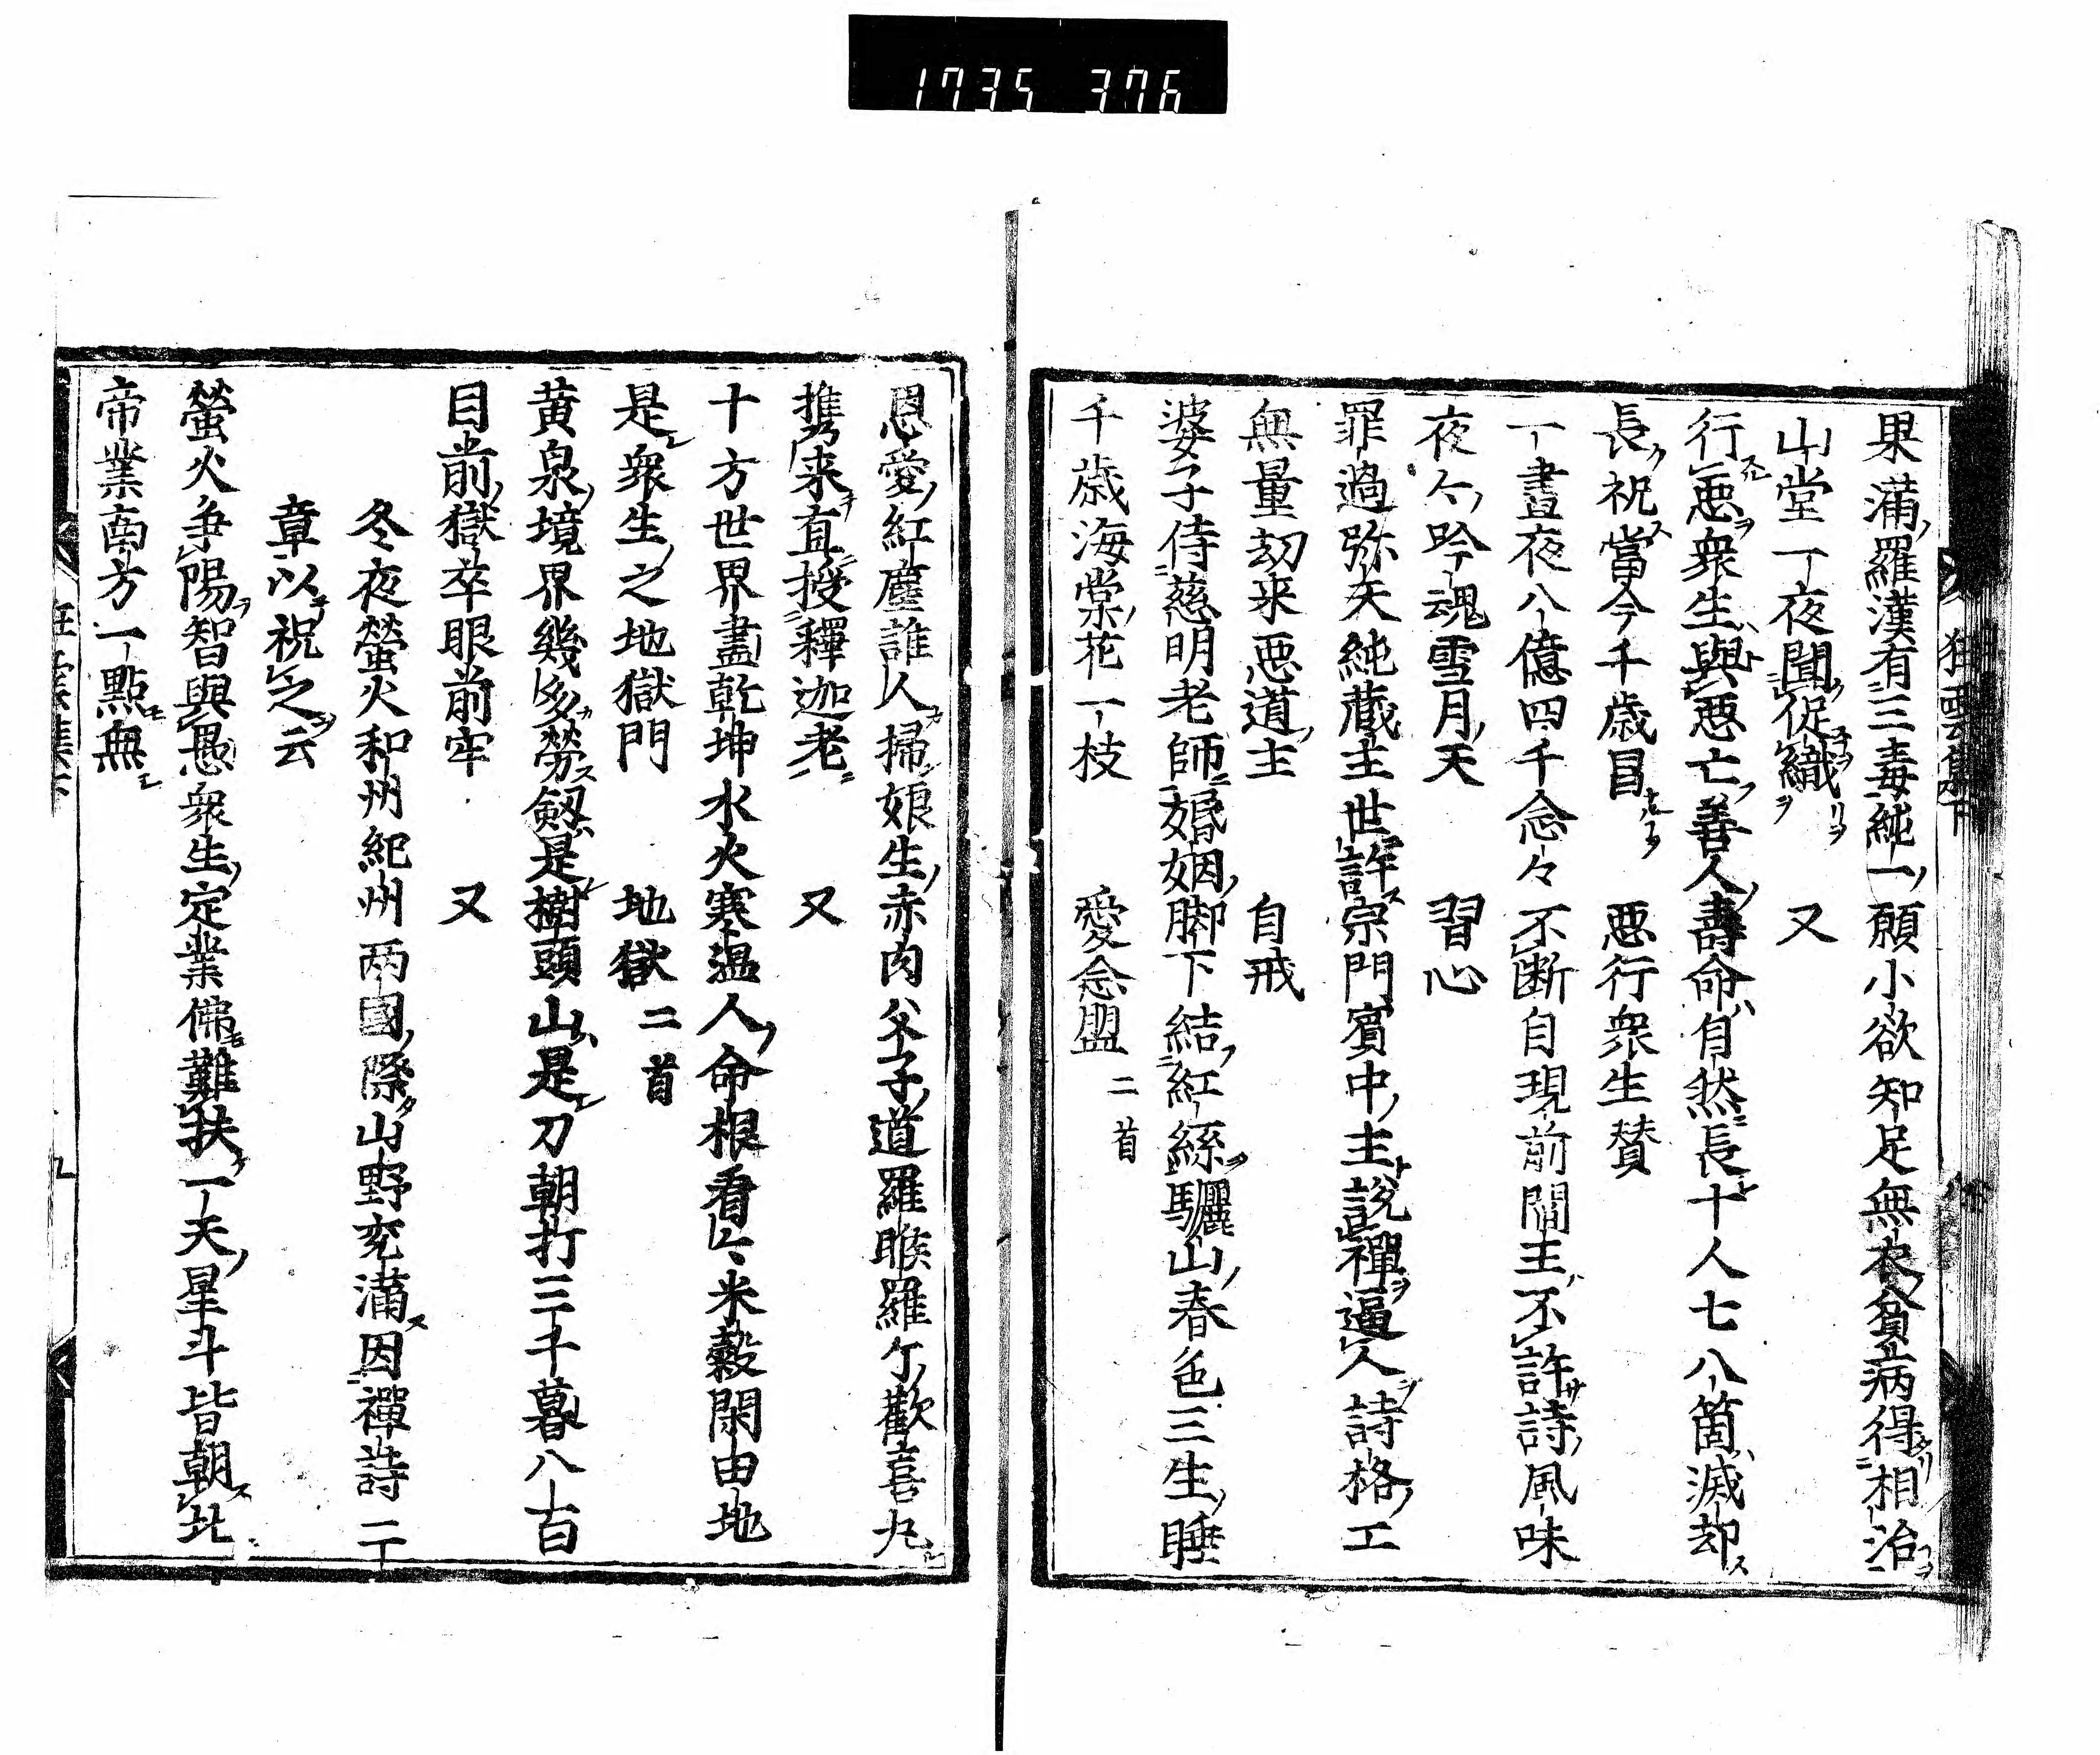 1735 376
狂雲集下
果滿羅漢有三毒純一願小欲知足無衣貧病得相治
山堂一夜聞促織　又
行惡衆生與惡亡善人壽命自然長十人七八箇滅却
長祝當今千歳昌　惡行衆生賛
一晝夜八億四千念々不断自現前閻王不許詩風味
夜々吟魂雪月天　習心
罪過弥天純藏主世許宗門賓中主說禪逼人詩格工
無量劫来惡道主　自戒
婆子侍慈明老師婚姻脚下結紅絲驪山春色三生睡
千歳海棠花一枝　愛念盟 二首
恩愛紅塵誰人掃娘生赤肉父子道羅睺羅々歡喜丸
携来直授釋迦老　又
十方世界盡乾坤水火寒温人命根看々米穀閑田地
是衆生之地獄門　地獄 二首
黄泉境界幾多勞劔是樹頭山是刀朝打三千暮八百
目前獄卒眼前牢　又
冬夜螢火和州紀州两國際山野充滿因禪詩二
章以祝之云
螢火争陽智與愚衆生定業佛難扶一天星斗皆朝北
帝業南方一點無
狂雲集下
九